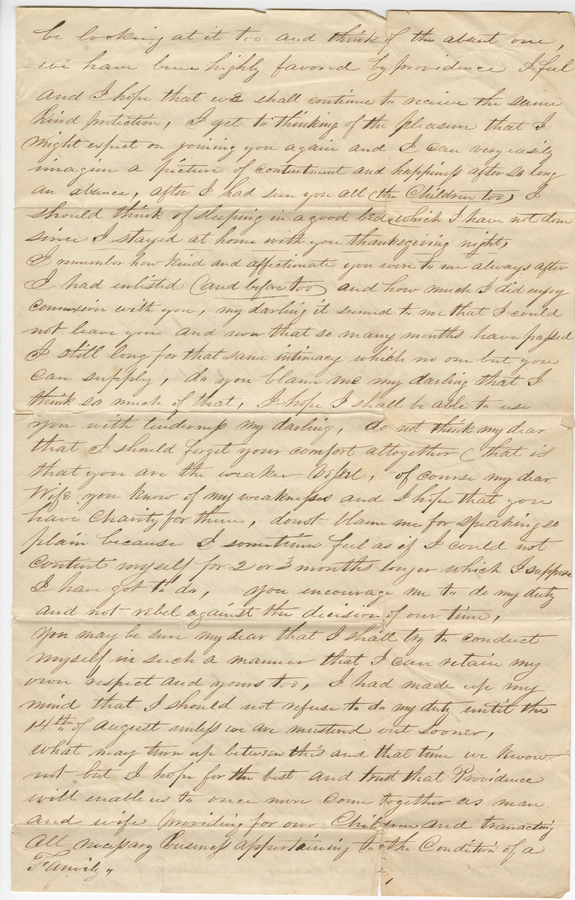 be looking at it too and think of the absent one,
we have been highly favored by providence I feel
and I hope that we shall continue to receive the same
kind protection, I get to thinking of the pleasure that I
might expect on joining you again and I can very easily
imagine a picture of contentment and happiness after so long
an absence, after I had seen you all (the Children too) I
should think of sleeping in a good bed (which I have not done
since I stayed at home with you thanksgiving night,
I remember how kind and affectionate you were to me always after
I had enlisted (and before too) and how much I did enjoy
connexion with you, my darling it seemed to me that I could
not leave you and now that so many months have passed
I still long for that same intimacy which no one but you
can supply, do you blame me my darling that I
think so much of that, I hope I shall be able to use
you with tenderness my darling, do not think my dear
that I should forget your comfort altogether (that is
that you are the weaker vessel, of course my dear
Wife you know of my weaknesses and I hope that you
have Charity for them, do not blame me for speaking so
plain because I sometimes feel as if I could not
content myself for 2 or 3 months longer which I suppose
I have got to do, you encourage me to do my duty
and not rebel against the decision of our time,
You may be sure my dear that I shall try to conduct
myself in such a manner that I can retain my
own respect and yours too, I had made up my
mind that I should not refuse to do my duty until the
14th of august unless we are mustend out sooner,
what may turn up between this and that time we know
not but I hope for the best and trust that Providence
will enable us to once more come together as man
and wife providing for our Children and transacting
all necessary business appertaining to the Condition of a
Family,